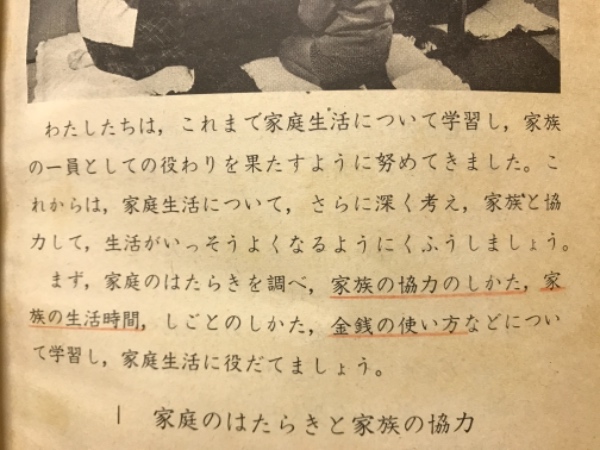 わたしたちは，これまで家庭生活について学習し，家族
の一員としての役わりを果たすように努めてきました。こ
れからは，家庭生活について，さらに深く考え，家族と協
力して，生活がいっそうよくなるようにくふうしましょう。
まず，家庭のはたらきを調べ，家族の協力のしかた，家
族の生活時間，しごとのしかた，金銭の使い方などについ
て学習し，家庭生活に役だてましょう。
1 家庭のはたらきと家族の協力